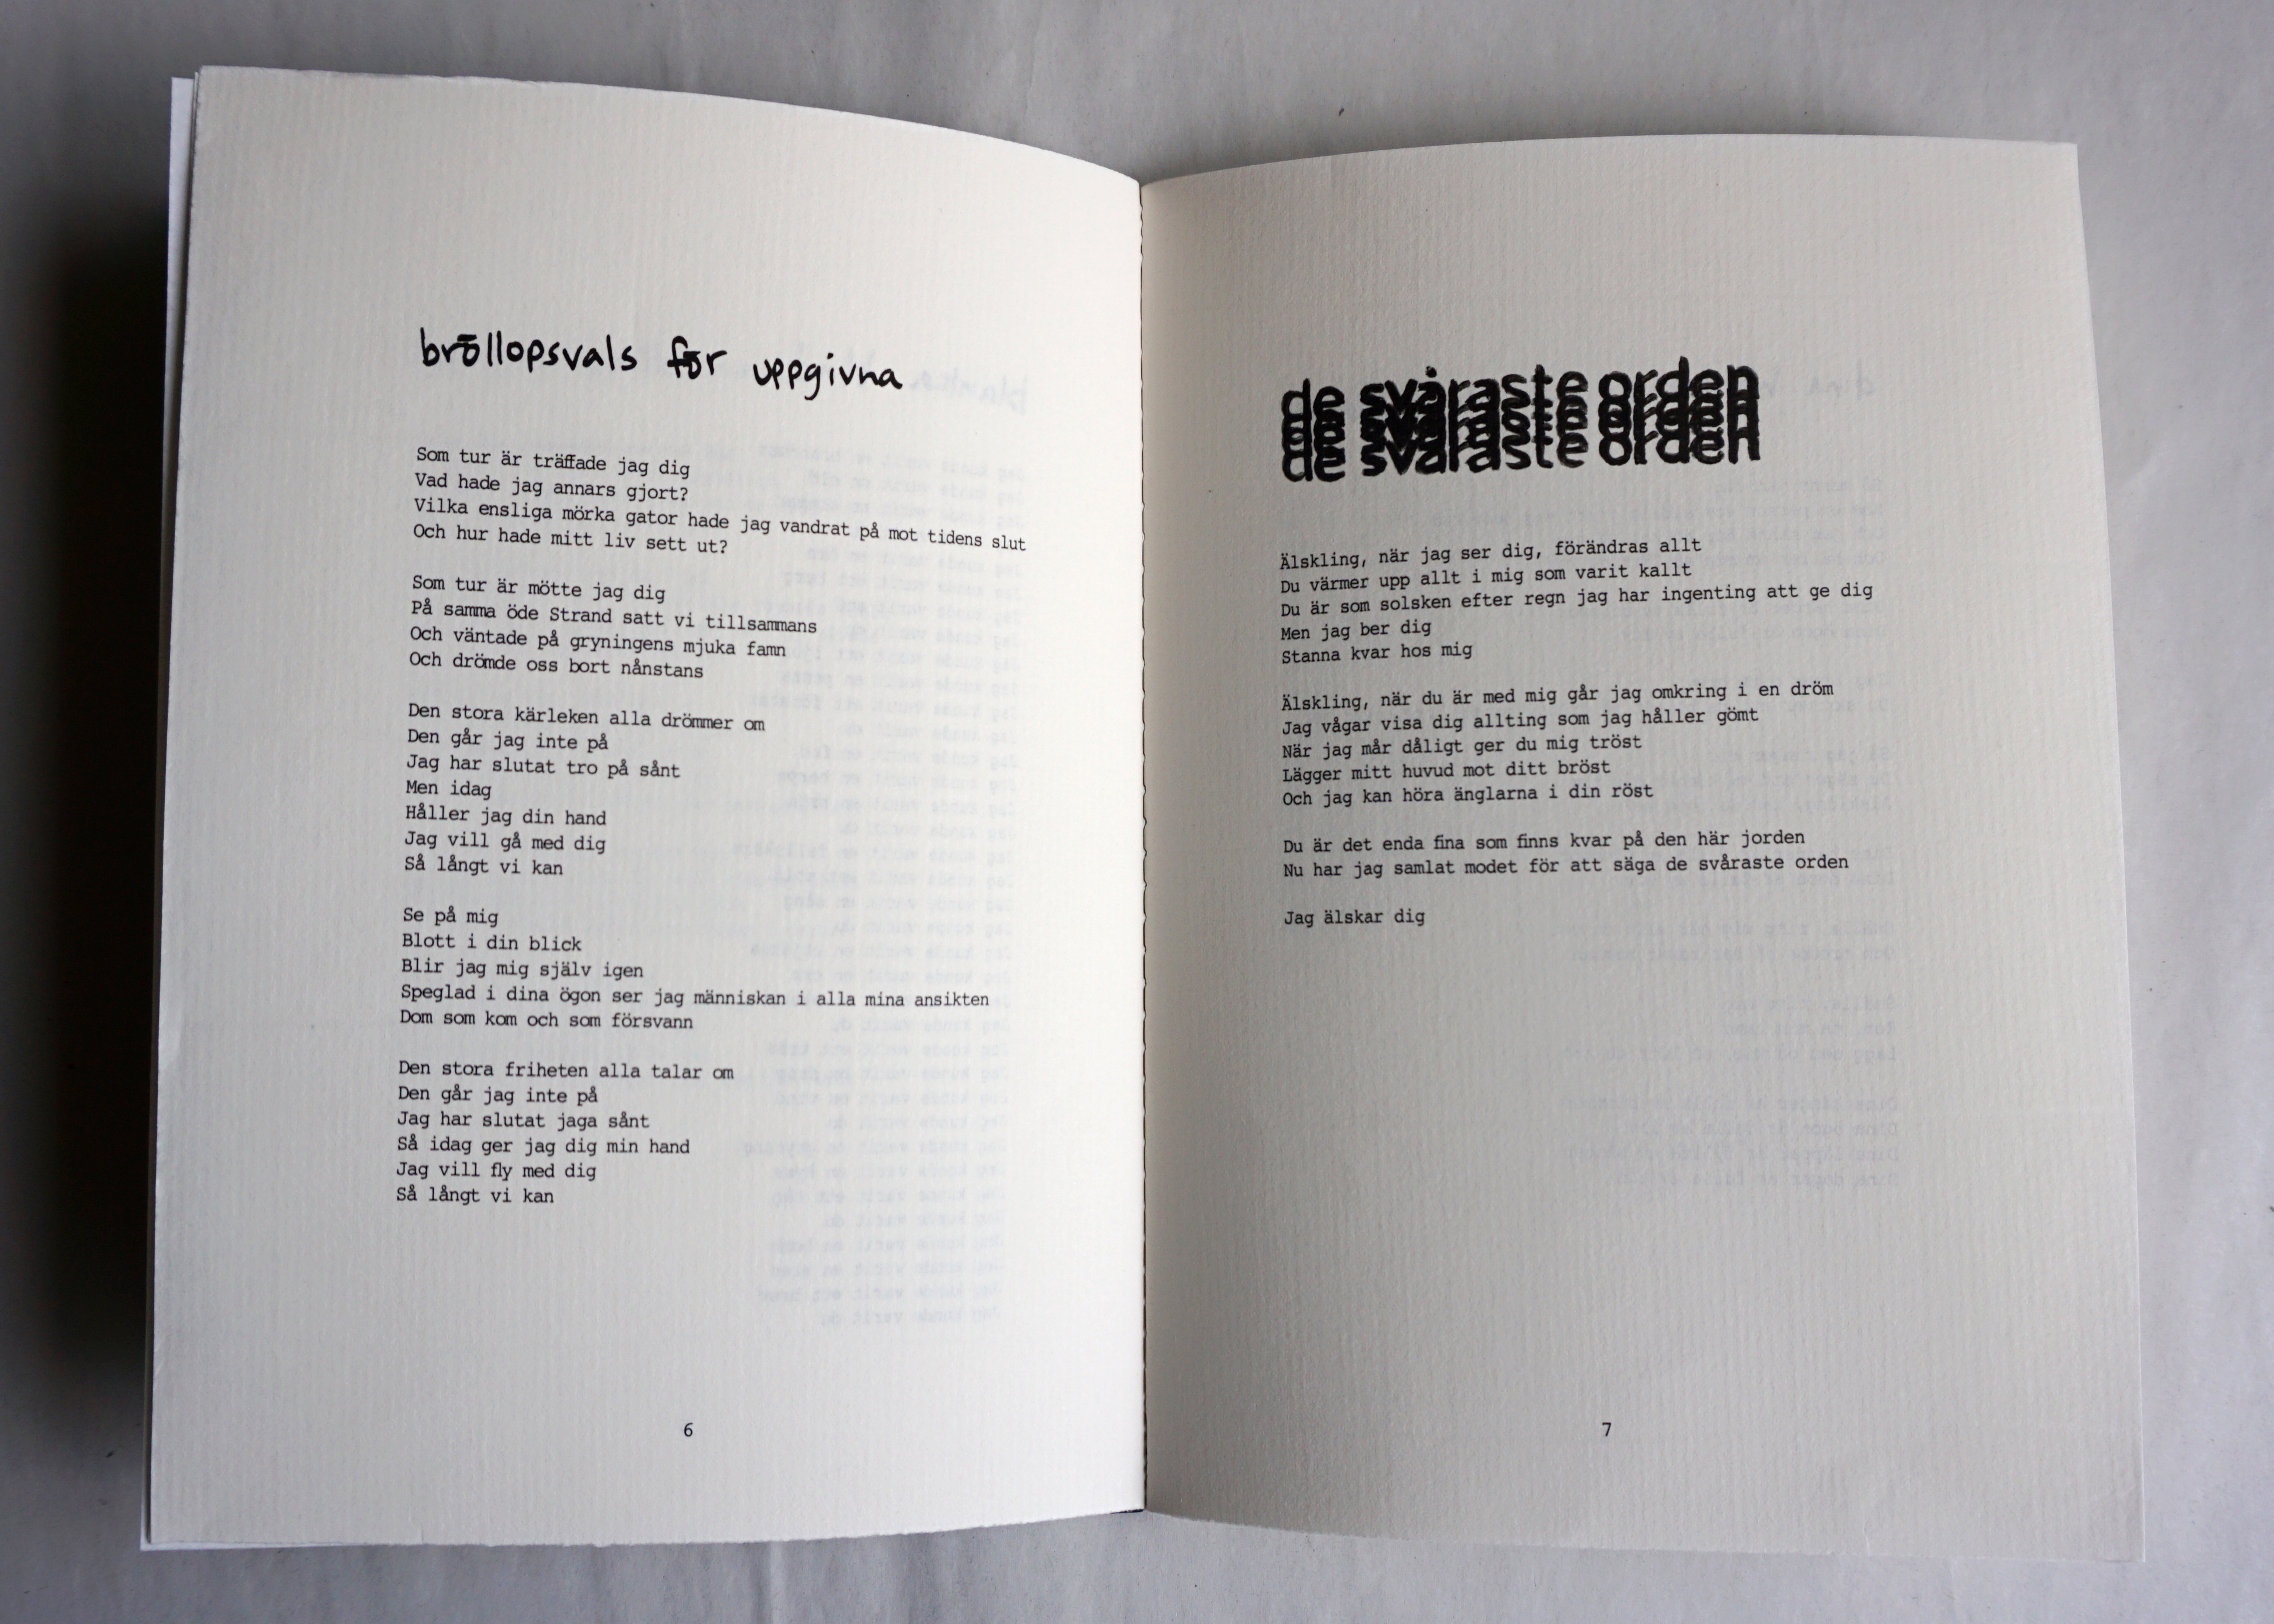 bröllopsvals för uppgivna
Som tur är träffade jag dig
Vad hade jag annars gjort?
Vilka ensliga mörka gator hade jag vandrat på mot tidens slut
Och hur hade mitt liv sett ut?
Som tur är mötte jag dig
På samma öde Strand satt vi tillsammans
Och väntade på gryningens mjuka famn
Och drömde oss bort nånstans
Den stora kärleken alla drömmer om
Den går jag inte på
Jag har slutat tro på sånt
Men idag
Håller jag din hand
Jag vill gå med dig
Så långt vi kan
Se på mig
Blott i din blick
Blir jag mig själv igen
Speglad i dina ögon ser jag människan i alla mina ansikten
Dom som kom och som försvann
Den stora friheten alla talar om
Den går jag inte på
Jag har slutat jaga sånt
Så idag ger jag dig min hand
Jag vill fly med dig
Så långt vi kan
6
de svåraste orden
de svåraste orden
de svåraste orden
de svåraste orden
Älskling, när jag ser dig, förändras allt
Du värmer upp allt i mig som varit kallt
Du är som solsken efter regn jag har ingenting att ge dig
Men jag ber dig
Stanna kvar hos mig
Älskling, när du är med mig går jag omkring i en dröm
Jag vågar visa dig allting som jag håller gömt
När jag mår dåligt ger du mig tröst
Lägger mitt huvud mot ditt bröst
Och jag kan höra änglarna i din röst
Du är det enda fina som finns kvar på den här jorden
Nu har jag samlat modet för att säga de svåraste orden
Jag älskar dig
7